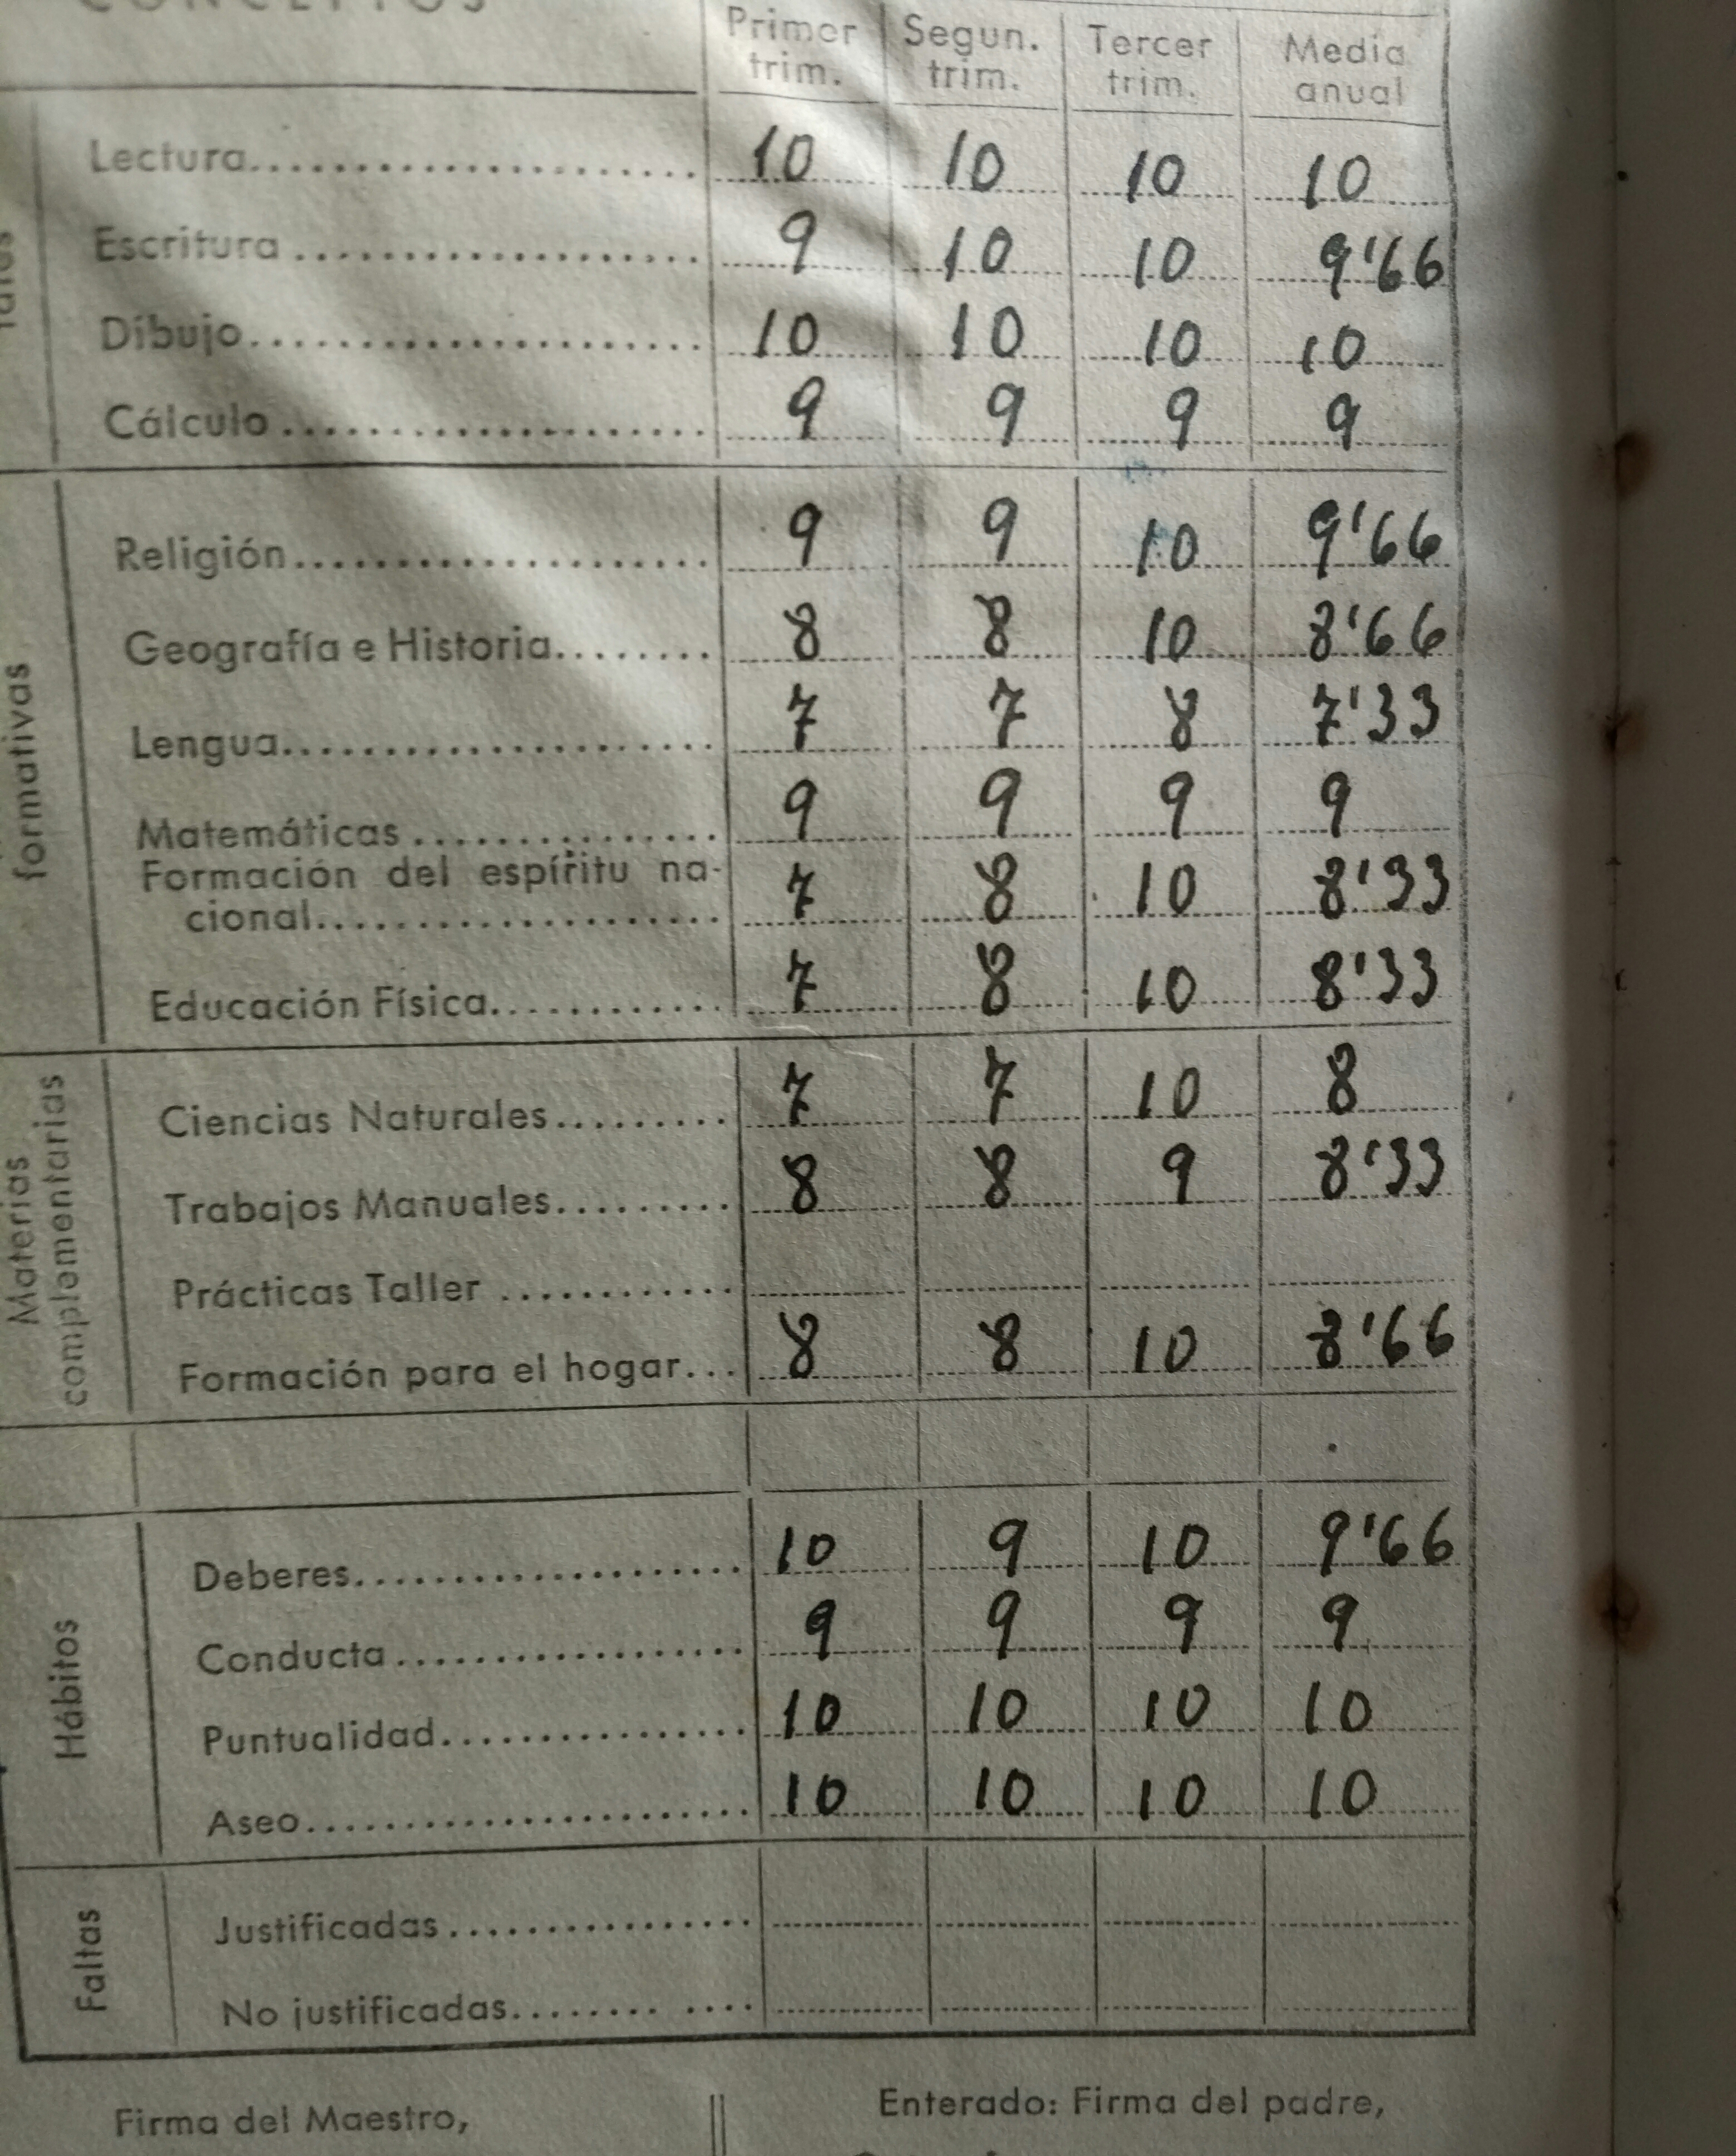 CONCEPTOS
Primer trim. Segun. trim. Tercer trim. Media anual
Lectura 10 10 10 10
Escritura 9 10 10 9'66
Dibujo 10 10 10 10
Cálculo 9 9 9 9
formativas
Religión 9 9 10 9'66
Geografía e Historia 8 8 10 8'66
Lengua 7 7 8 7'33
Matemáticas 9 9 9 9
Formación del espíritu na-
cional 7 8 10 8'33
Educación Física 7 8 10 8'33
Materias complementarias
Ciencias Naturales 7 7 10 8
Trabajos Manuales 8 8 9 8'33
Prácticas Taller
Formación para el hogar 8 8 10 8'66
Hábitos
Deberes 10 9 10 9'66
Conducta 9 9 9 9
Puntualidad 10 10 10 10
Aseo 10 10 10 10
Faltas
Justificadas
No justificadas
Firma del Maestro,
Enterado: Firma del padre,